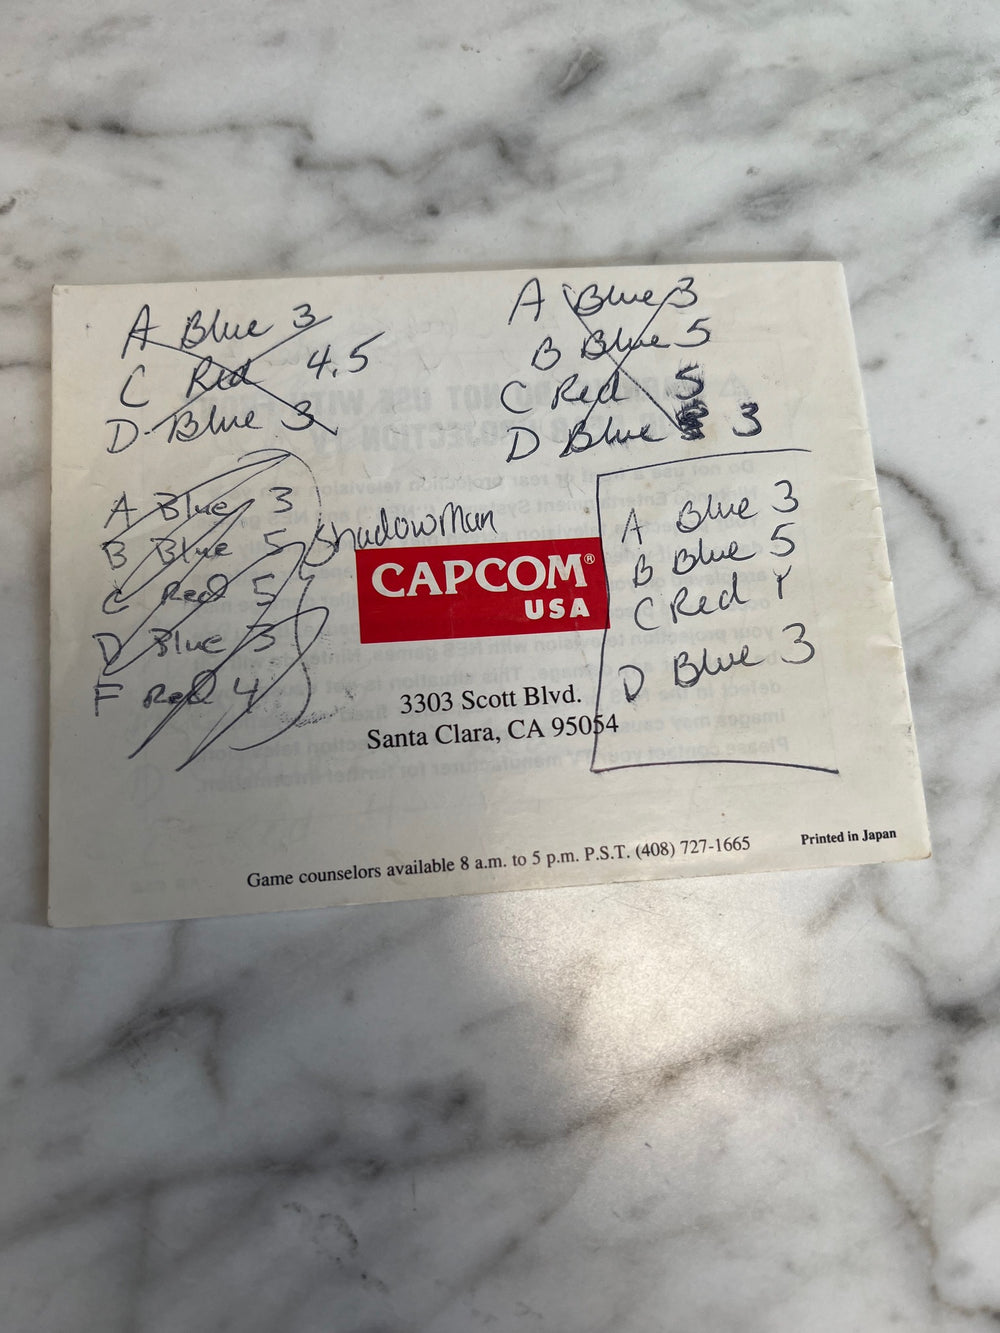 A Blue 3
C Red 4.5
D Blue 3
A Blue 3
B Blue 5
C Red 5
D Blue 3
A Blue 3
B Blue 5
C Red 5
D Blue 3
F Red 4
ShadowMan
A Blue 3
B Blue 5
C Red 1
D Blue 3
CAPCOM®
USA
3303 Scott Blvd.
Santa Clara, CA 95054
Game counselors available 8 a.m. to 5 p.m. P.S.T. (408) 727-1665
Printed in Japan